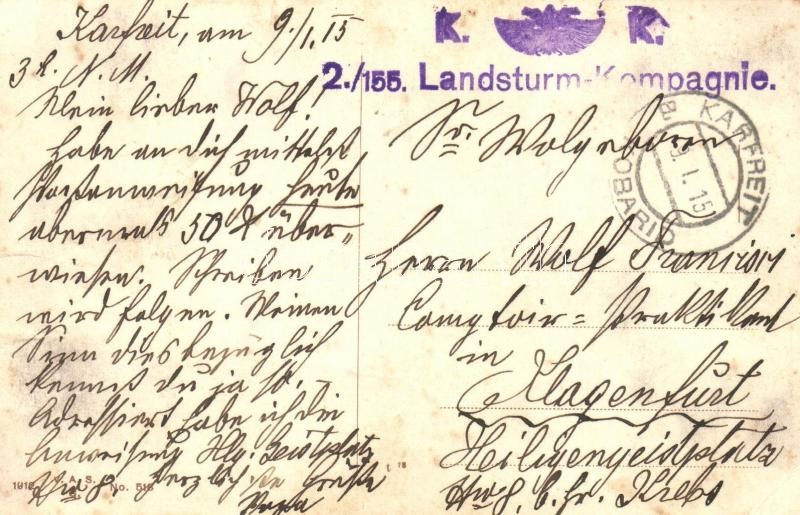 Karfreit, am 9./1. 15
3 h. N. M.
Mein lieber Wolf!
Habe an dich mittelst
Postanweisung heute
abermals 50 K über-
wiesen. Schreiben
wird folgen. Meinen
Sinn diesbezüglich
kennst du ja so. –
Adressiert habe ich die
Anweisung Hlg. Geistplatz
No 8. Herzlichste Grüße
Papa
K. K.
2./155. Landsturm-Kompagnie.
KARFREIT
9. I. 15
Sr. Wolgeboren
Herrn Wolf Francisci
Comptoir = Praktikant
in
Klagenfurt
Heiligengeistplatz
No 8, b. Fr. Krebs
No. 518